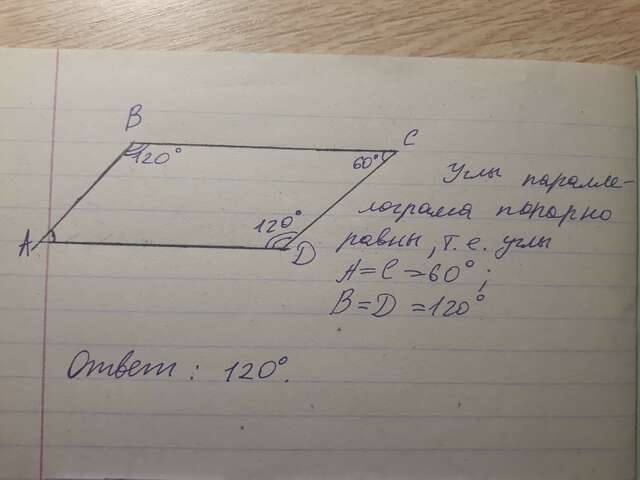 B
C
120°
60°
120°
A
D
Углы паралле-
лограма попарно
равны, т.е. углы
A=C=60°;
B=D=120°
Ответ: 120°.